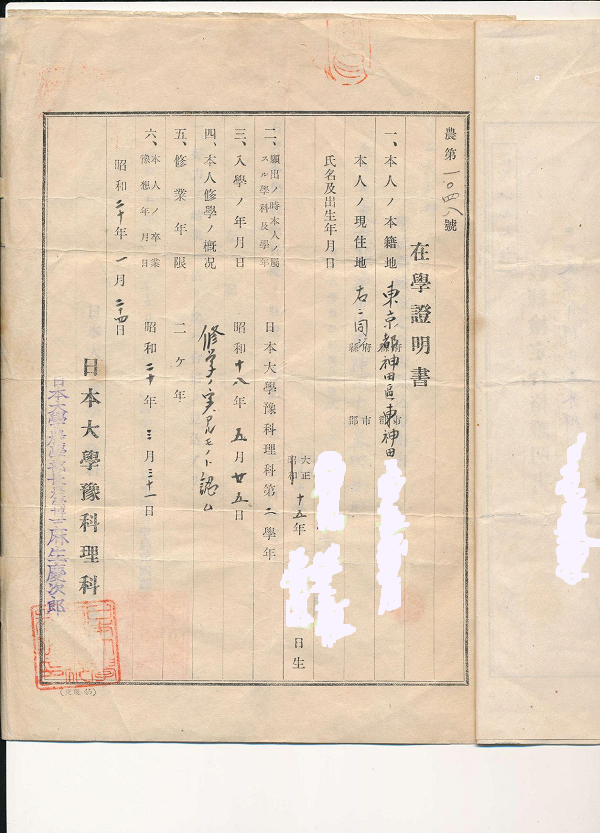 農第一〇四八號
在學證明書
一、本人ノ本籍地 東京都神田區東神田
本人ノ現住地 右ニ同ジ 府縣 市郡
氏名及出生年月日 大正昭和十五年 日生
二、願出ノ時本人ノ屬スル學科及學年 日本大學豫科理科第二學年
三、入學ノ年月日 昭和十八年五月廿五日
四、本人修學ノ槪況 修学ノ実アルモノト認ム
五、修業年限 二ケ年
六、本人ノ卒業豫想年月日 昭和二十年三月三十一日
昭和二十年一月二四日
日本大學豫科理科
麻生慶次郎